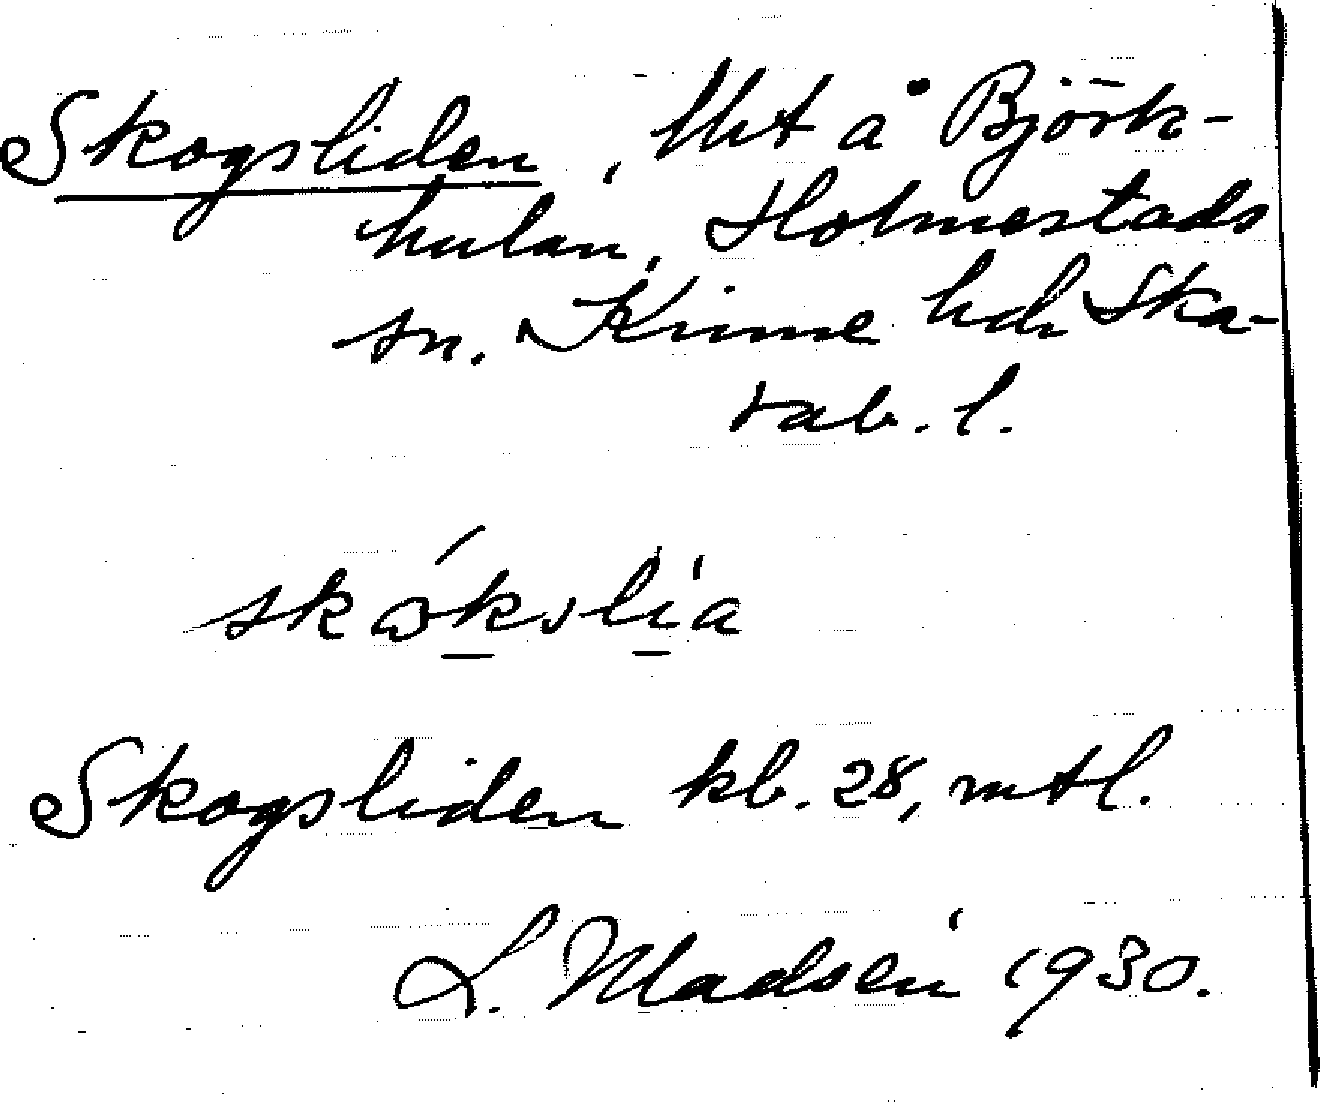 Skogsliden, lht å Björk-
kulan, Holmestads
sn. Kinne hd, Ska-
rab. l.
skɷ́kslia
Skogsliden kb. 28, mtl.
L. Madsén 1930.